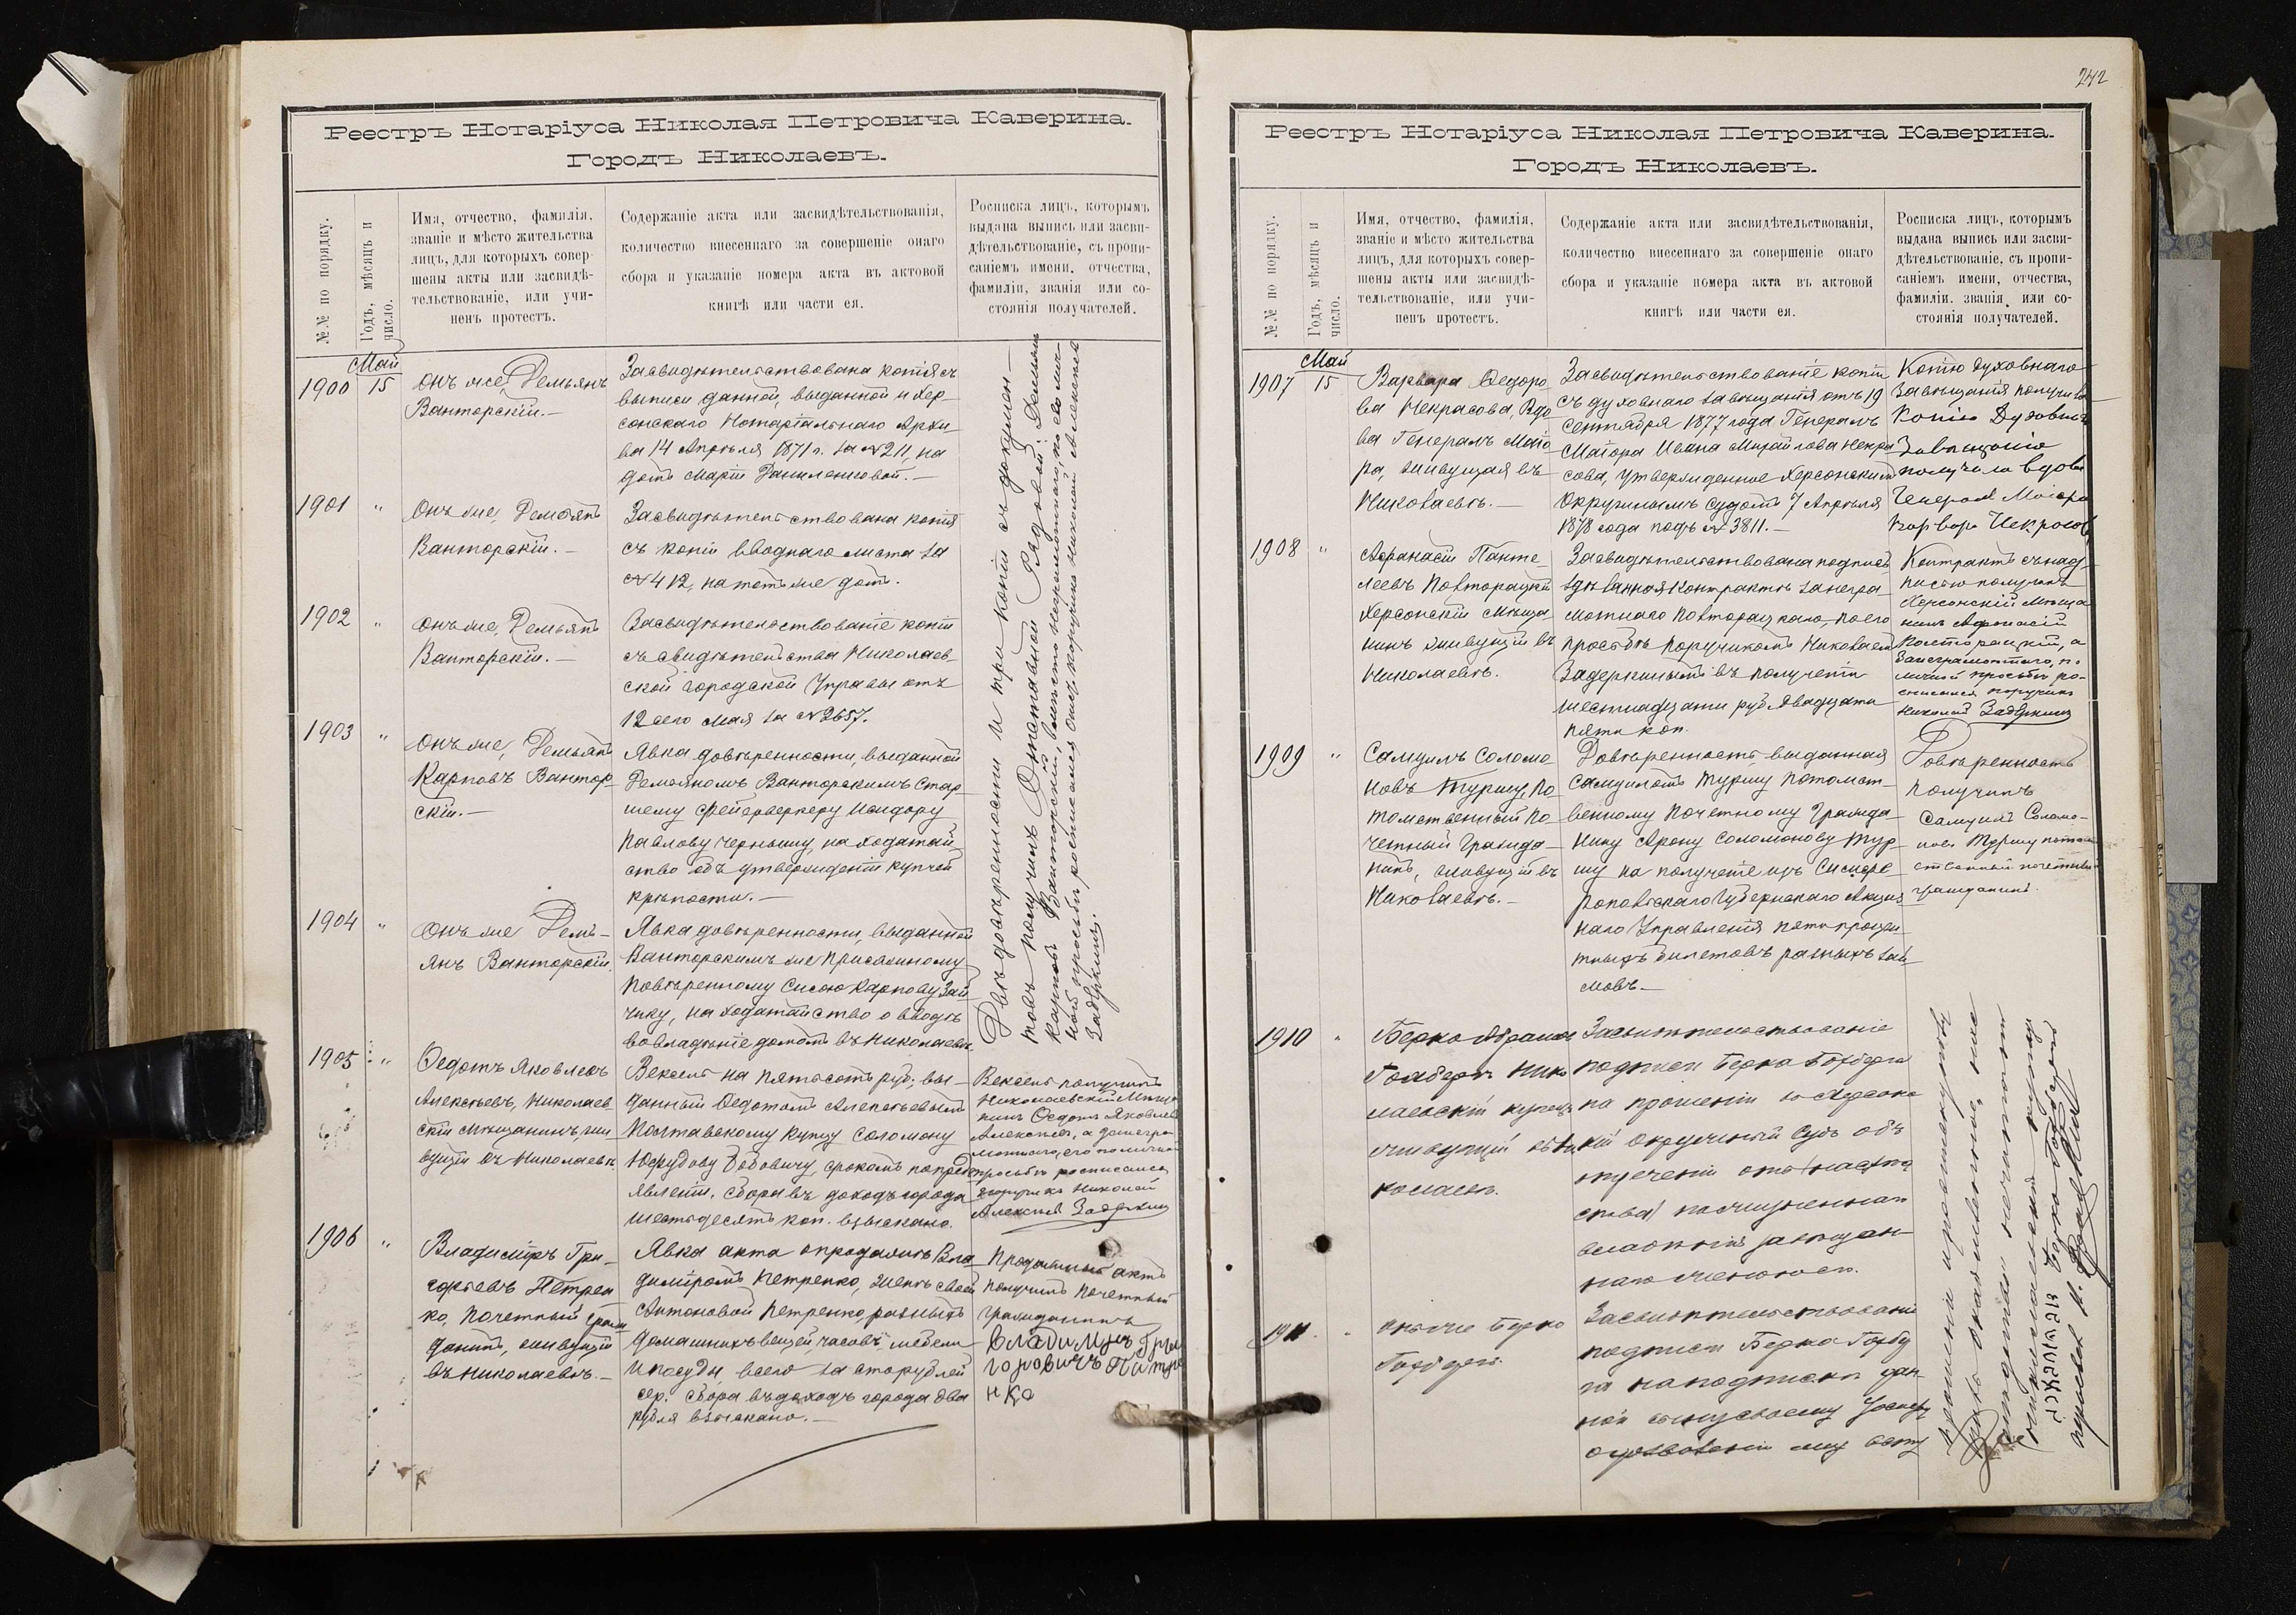 Реестръ Нотаріуса Николая Петровича Каверина.
Городъ Николаевъ.
№№ по порядку.
Годъ, мѣсяцъ и
число.
Имя, отчество, фамилія,
званіе и мѣсто жительства
лицъ, для которыхъ совер-
шены акты или засвидѣ-
тельствованіе, или учи-
ненъ протестъ.
Содержаніе акта или засвидѣтельствованія,
количество внесеннаго за совершеніе онаго
сбора и указаніе номера акта въ актовой
книгѣ или части ея.
Росписка лицъ, которымъ
выдана выпись или засви-
дѣтельствованіе, съ пропи-
саніемъ имени, отчества,
фамиліи, званія или со-
стоянія получателей.
Май
1900 15
Онъ же, Демьянъ
Ванторскій.—
Засвидѣтельствована копія съ
выписи данной, выданной изъ Хер-
сонскаго Нотаріальнаго Архи-
ва 14 Апрѣля 1871 г. за №211, на
домъ Маріи Даниленковой.—
1901 "
Онъ же, Демьянъ
Ванторскій.—
Засвидѣтельствована копія
съ копіи вводнаго листа за
№412, на тотъ же домъ.
1902 "
Онъ же, Демьянъ
Ванторскій.—
Засвидѣтельствованіе копіи
съ свидѣтельства Николаев-
ской Городской Управы отъ
12 сего Мая за №2657.
1903 "
Онъ же, Демьянъ
Карповъ Вантор-
скій.—
Явка довѣренности, выданной
Демьяномъ Ванторскимъ Стар-
шему Фейерверкеру Исидору
Павлову Чернышу, на ходатай-
ство объ утвержденіи купчей
крѣпости.—
1904 "
Онъ же Демь-
янъ Ванторскій.
Явка довѣренности, выданной
Ванторскимъ же Присяжному
Повѣренному Сисою Карпову Зай-
чику, на ходатайство о вводѣ
во владѣніе домомъ въ Николаевѣ.
Двѣ довѣренности и три копіи съ докумен-
товъ получилъ Отставной Рядовой: Демьянъ
Карповъ Ванторскій, вмѣсто неграмотнаго, по его лич-
ной просьбѣ росписался Отст. поручикъ Николай Алексѣевъ
Задеркинъ.
1905 "
Ѳедотъ Яковлевъ
Алексѣевъ, Николаев-
скій мѣщанинъ, жи-
вущій въ Николаевѣ.
Вексель на пятьсотъ руб. вы-
данный Ѳедотомъ Алексѣевымъ
Полтавскому купцу Соломону
срокомъ по предъ-
явленіи. Сбора въ доходъ города
шестьдесятъ коп. взыскано.
Вексель получилъ
Николаевскій Мѣща-
нинъ Ѳедотъ Яковлевъ
Алексѣевъ, а за негра-
мотнаго, его по личной
просьбѣ росписался
поручикъ Николай
Алексѣевъ Задеркинъ
1906 "
Владиміръ Гри-
горьевъ Петрен-
ко, Почетный Граж-
данинъ, живущій
въ Николаевѣ.—
Явка акта о продажѣ Вла-
диміромъ Петренко, женѣ своей
Антоновой Петренко, разныхъ
домашнихъ вещей, часовъ, мебели
и посуды, всего за сто рублей
сер. Сбора въ доходъ города два
рубля взыскано.—
Продажный актъ
получилъ Почетный
Гражданинъ
Владимиръ Гри
горовичъ Питре
нко
242
Реестръ Нотаріуса Николая Петровича Каверина.
Городъ Николаевъ.
№№ по порядку.
Годъ, мѣсяцъ и
число.
Имя, отчество, фамилія,
званіе и мѣсто жительства
лицъ, для которыхъ совер-
шены акты или засвидѣ-
тельствованіе, или учи-
ненъ протестъ.
Содержаніе акта или засвидѣтельствованія,
количество внесеннаго за совершеніе онаго
сбора и указаніе номера акта въ актовой
книгѣ или части ея.
Росписка лицъ, которымъ
выдана выпись или засви-
дѣтельствованіе, съ пропи-
саніемъ имени, отчества,
фамиліи. званія или со-
стоянія получателей.
Май
1907 15
Варвара Ѳедоро-
ва Некрасова, Вдо-
ва Генералъ Маіо-
ра, живущая въ
Николаевѣ.—
Засвидѣтельствованіе копіи
съ духовнаго завѣщанія отъ 19
сентября 1877 года Генералъ
Маіора Ивана Михайлова Некра-
сова, утвержденное Херсонскимъ
Окружнымъ Судомъ 7 Апрѣля
1878 года подъ №3811.—
Копію духовнаго
завѣщанія получила
Копію Духовнаго
Завѣщанія
получила вдова
Генералъ Маіора
Варвара Некрасова
1908 "
Афанасій Панте-
леевъ Повторацкій
Херсонскій мѣща-
нинъ живущій въ
Николаевѣ.
Засвидѣтельствована подпись
сдѣланная контрактѣ за негра-
мотнаго Повторацкаго, по его
просьбѣ поручикомъ Николаемъ
Задеркинымъ въ полученіи
шестнадцати руб. двадцати
пяти коп.
Контрактъ съ над-
писью получилъ
Херсонскій Мѣща-
нинъ Афанасій
Повторацкій, а
за неграмотнаго, по
личной просьбѣ ро-
списался поручикъ
Николай Задеркинъ
1909 "
Самуилъ Соломо-
новъ Туришъ, По-
томственный По-
четный Гражда-
нинъ, живущій въ
Николаевѣ.—
Довѣренность, выданная
Самуиломъ Туришъ Потомст-
венному Почетному Гражда-
нину Арону Соломонову Тур-
ишу на полученіе изъ Симфе-
ропольскаго Губернскаго Акциз-
наго Управленія пятипроцен-
тныхъ билетовъ разныхъ зай-
мовъ.—
Довѣренность
получилъ
Самуилъ Соломо-
новъ Туришъ потом-
ственный почетный
гражданинъ.
1910 "
Берко
Николаевскій купецъ
живущій въ Ни-
колаевѣ.
Засвидѣтельствованіе
подписи Берка
на прошеніи въ Херсон-
скій окружной Судъ объ
1911 "
Онъ же Берко
Засвидѣтельствованіе
подписи Берка